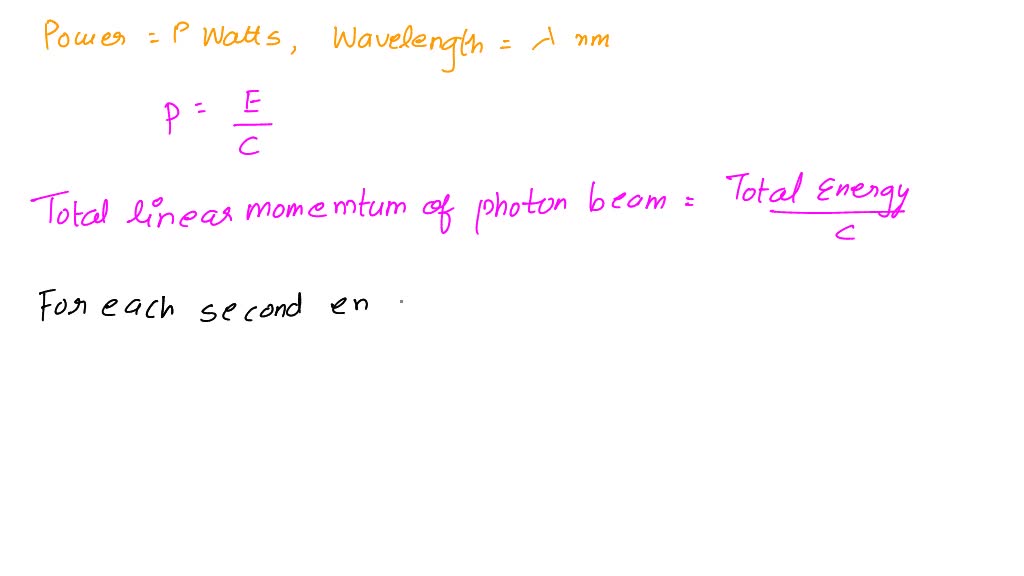 Power = P Watts, Wavelength = λ nm
p = E/C
Total linear momemtum of photon beam = Total Energy/c
For each second en